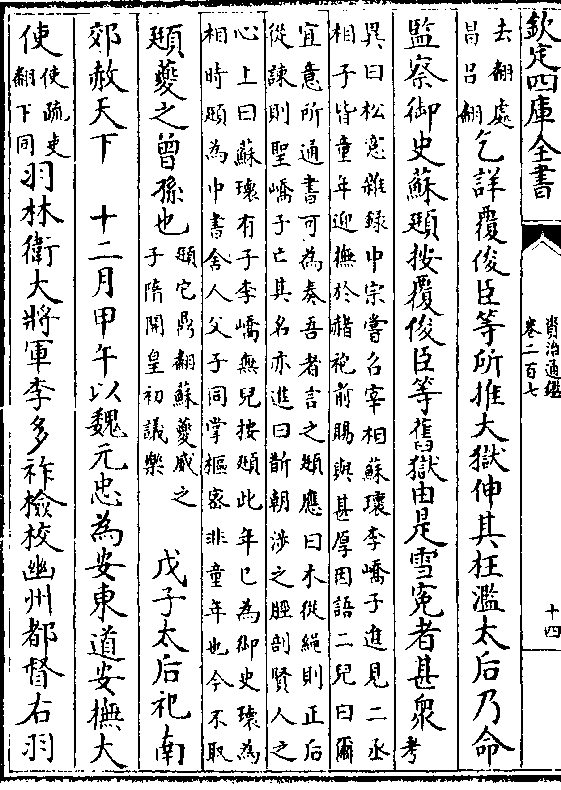 欽定四庫全書
資治通鑑
卷二百七
十四
去翻處
昌呂翻
乞詳覆俊臣等所推大獄伸其枉濫太后乃命
監察御史蘇頲按覆俊臣等舊獄由是雪寃者甚衆考
異曰松窻雜録中宗嘗召宰相蘇瓌李嶠子進見二丞
相子皆童年迎撫於赭袍前賜與甚厚因語二兒曰爾
宜意所通書可為奏吾者言之頲應曰木從繩則正后
從諫則聖嶠子亡其名亦進曰斮朝涉之脛剖賢人之
心上曰蘇瓌有子李嶠無兒按頲此年已為御史瓌為
相時頲為中書舍人父子同掌樞密非童年也今不取
頲夔之曾孫也
頲它鼎翻蘇夔威之
子隋開皇初議樂
戊子太后祀南
郊赦天下　十二月甲午以魏元忠為安東道安撫大
使
使疏吏
翻下同
羽林衛大將軍李多祚檢校幽州都督右羽